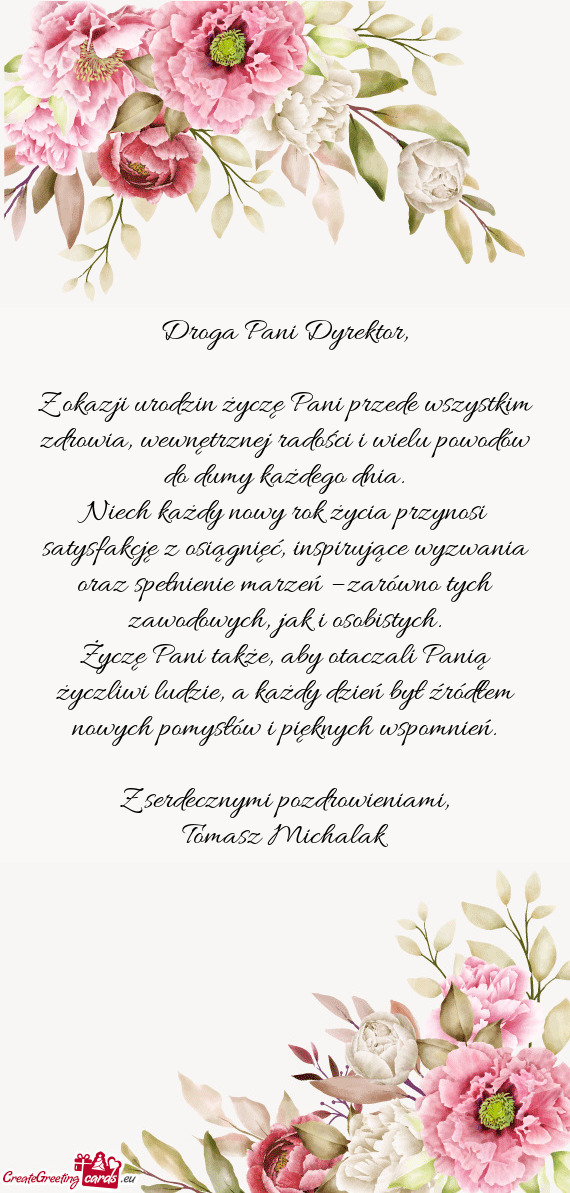 Droga Pani Dyrektor,
Z okazji urodzin życzę Pani przede wszystkim
zdrowia, wewnętrznej radości i wielu powodów
do dumy każdego dnia.
Niech każdy nowy rok życia przynosi
satysfakcję z osiągnięć, inspirujące wyzwania
oraz spełnienie marzeń – zarówno tych
zawodowych, jak i osobistych.
Życzę Pani także, aby otaczali Panią
życzliwi ludzie, a każdy dzień był źródłem
nowych pomysłów i pięknych wspomnień.
Z serdecznymi pozdrowieniami,
Tomasz Michalak
CreateGreeting cards .eu